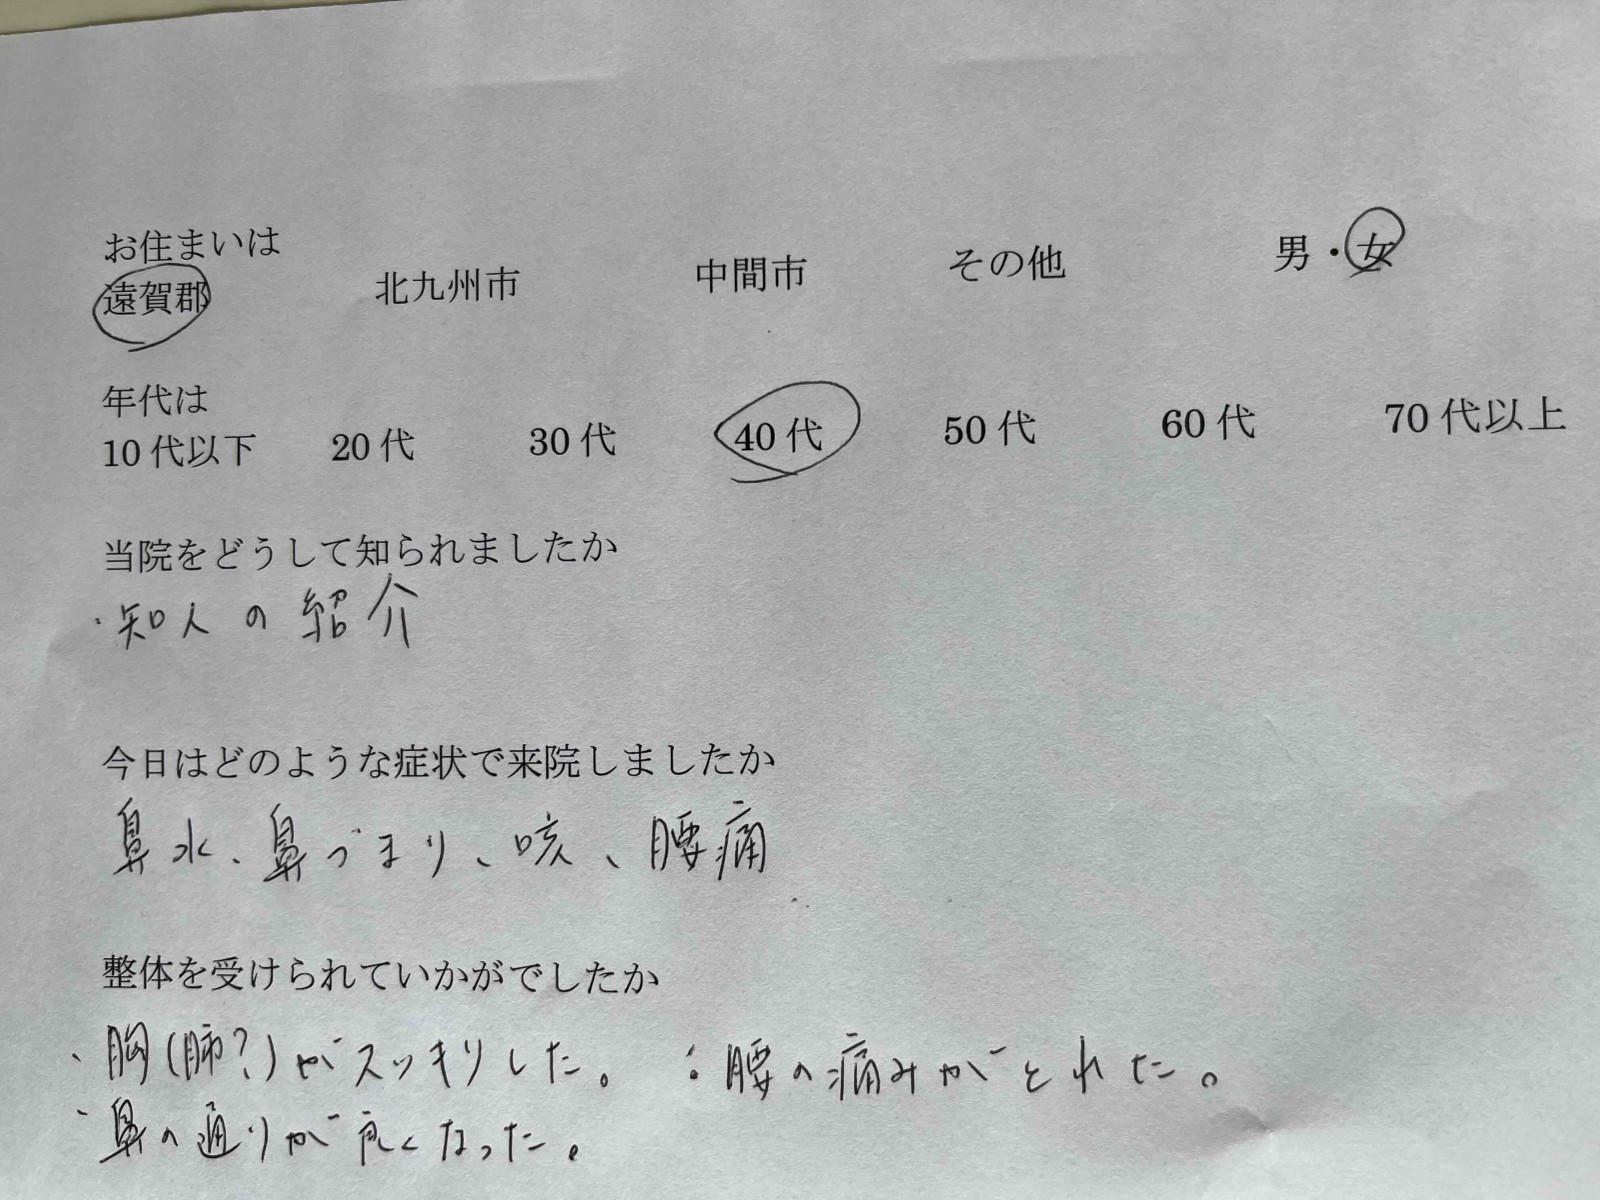 お住まいは
遠賀郡 北九州市 中間市 その他 男・女
年代は
10代以下 20代 30代 40代 50代 60代 70代以上
当院をどうして知られましたか
・知人の紹介
今日はどのような症状で来院しましたか
鼻水、鼻づまり、咳、腰痛
整体を受けられていかがでしたか
・胸(肺?)がスッキリした。 ・腰の痛みがとれた。
・鼻の通りが良くなった。